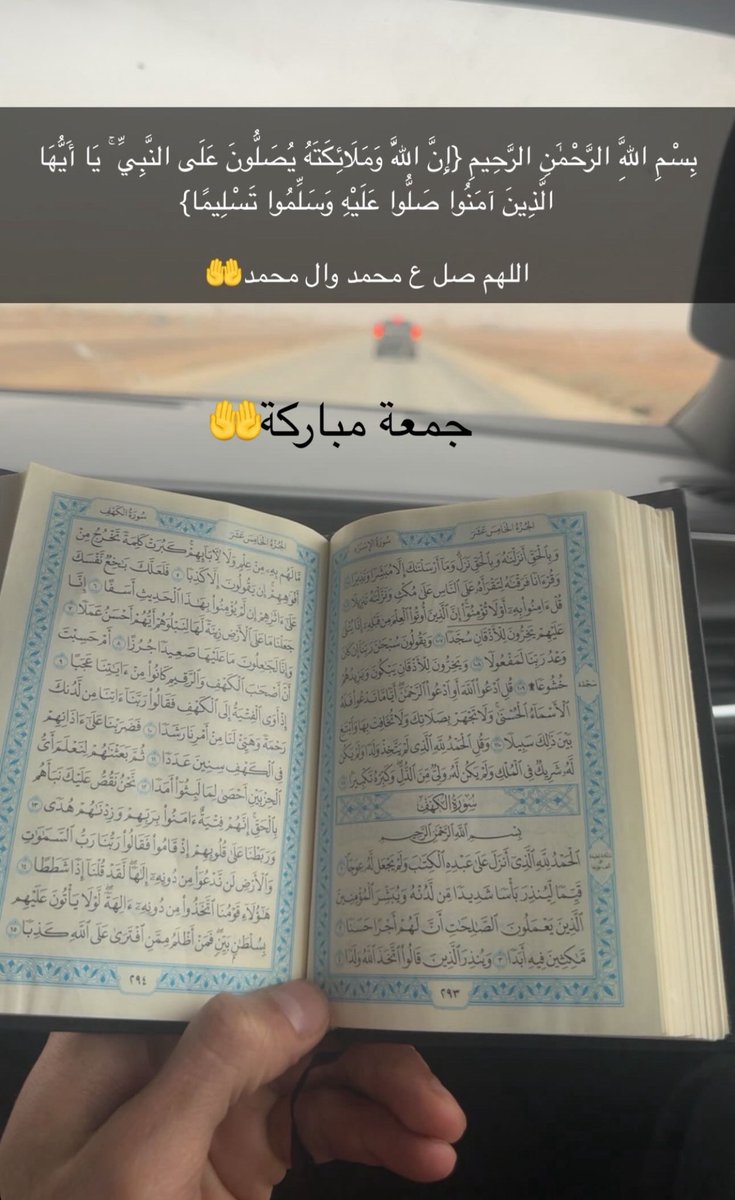 بِسْمِ اللَّهِ الرَّحْمَٰنِ الرَّحِيمِ {إِنَّ اللَّهَ وَمَلَائِكَتَهُ يُصَلُّونَ عَلَى النَّبِيِّ ۚ يَا أَيُّهَا
الَّذِينَ آمَنُوا صَلُّوا عَلَيْهِ وَسَلِّمُوا تَسْلِيمًا}
اللهم صل ع محمد وال محمد🤲
جمعة مباركة🤲
الجُزْءُ الخَامِس عَشَر
سُورَةُ الإِسْرَاء
وَبِالْحَقِّ أَنزَلْنَاهُ وَبِالْحَقِّ نَزَلَ وَمَا أَرْسَلْنَاكَ إِلَّا مُبَشِّرًا وَنَذِيرًا ١٠٥
وَقُرْءَانًا فَرَقْنَاهُ لِتَقْرَأَهُ عَلَى النَّاسِ عَلَى مُكْثٍ وَنَزَّلْنَاهُ تَنزِيلًا ١٠٦
قُلْ ءَامِنُوا بِهِ أَوْ لَا تُؤْمِنُوا إِنَّ الَّذِينَ أُوتُوا الْعِلْمَ مِن قَبْلِهِ إِذَا يُتْلَى
عَلَيْهِمْ يَخِرُّونَ لِلْأَذْقَانِ سُجَّدًا ١٠٧ وَيَقُولُونَ سُبْحَانَ رَبِّنَا إِن كَانَ
وَعْدُ رَبِّنَا لَمَفْعُولًا ١٠٨ وَيَخِرُّونَ لِلْأَذْقَانِ يَبْكُونَ وَيَزِيدُهُمْ
خُشُوعًا ۩ ١٠٩ قُلِ ادْعُوا اللَّهَ أَوِ ادْعُوا الرَّحْمَٰنَ أَيًّا مَّا تَدْعُوا فَلَهُ
الْأَسْمَاءُ الْحُسْنَى وَلَا تَجْهَرْ بِصَلَاتِكَ وَلَا تُخَافِتْ بِهَا وَابْتَغِ
بَيْنَ ذَٰلِكَ سَبِيلًا ١١٠ وَقُلِ الْحَمْدُ لِلَّهِ الَّذِي لَمْ يَتَّخِذْ وَلَدًا وَلَمْ يَكُن
لَّهُ شَرِيكٌ فِي الْمُلْكِ وَلَمْ يَكُن لَّهُ وَلِيٌّ مِّنَ الذُّلِّ وَكَبِّرْهُ تَكْبِيرًا ١١١
سُورَةُ الكَهْفِ
بِسْمِ اللَّهِ الرَّحْمَٰنِ الرَّحِيمِ
الْحَمْدُ لِلَّهِ الَّذِي أَنزَلَ عَلَى عَبْدِهِ الْكِتَابَ وَلَمْ يَجْعَل لَّهُ عِوَجًا ١
قَيِّمًا لِّيُنذِرَ بَأْسًا شَدِيدًا مِّن لَّدُنْهُ وَيُبَشِّرَ الْمُؤْمِنِينَ
الَّذِينَ يَعْمَلُونَ الصَّالِحَاتِ أَنَّ لَهُمْ أَجْرًا حَسَنًا ٢
مَّاكِثِينَ فِيهِ أَبَدًا ٣ وَيُنذِرَ الَّذِينَ قَالُوا اتَّخَذَ اللَّهُ وَلَدًا ٤
سَجْدَة
٢٩٣
الجُزْءُ الخَامِس عَشَر
سُورَةُ الكَهْفِ
مَّا لَهُم بِهِ مِنْ عِلْمٍ وَلَا لِآبَائِهِمْ كَبُرَتْ كَلِمَةً تَخْرُجُ مِنْ
أَفْوَاهِهِمْ إِن يَقُولُونَ إِلَّا كَذِبًا ٥ فَلَعَلَّكَ بَاخِعٌ نَّفْسَكَ
عَلَى ءَاثَارِهِمْ إِن لَّمْ يُؤْمِنُوا بِهَٰذَا الْحَدِيثِ أَسَفًا ٦ إِنَّا
جَعَلْنَا مَا عَلَى الْأَرْضِ زِينَةً لَّهَا لِنَبْلُوَهُمْ أَيُّهُمْ أَحْسَنُ عَمَلًا ٧
وَإِنَّا لَجَاعِلُونَ مَا عَلَيْهَا صَعِيدًا جُرُزًا ٨ أَمْ حَسِبْتَ
أَنَّ أَصْحَابَ الْكَهْفِ وَالرَّقِيمِ كَانُوا مِنْ ءَايَاتِنَا عَجَبًا ٩
إِذْ أَوَى الْفِتْيَةُ إِلَى الْكَهْفِ فَقَالُوا رَبَّنَا ءَاتِنَا مِن لَّدُنكَ
رَحْمَةً وَهَيِّئْ لَنَا مِنْ أَمْرِنَا رَشَدًا ١٠ فَضَرَبْنَا عَلَى ءَاذَانِهِمْ
فِي الْكَهْفِ سِنِينَ عَدَدًا ١١ ثُمَّ بَعَثْنَاهُمْ لِنَعْلَمَ أَيُّ
الْحِزْبَيْنِ أَحْصَى لِمَا لَبِثُوا أَمَدًا ١٢ نَّحْنُ نَقُصُّ عَلَيْكَ نَبَأَهُم
بِالْحَقِّ إِنَّهُمْ فِتْيَةٌ ءَامَنُوا بِرَبِّهِمْ وَزِدْنَاهُمْ هُدًى ١٣
وَرَبَطْنَا عَلَى قُلُوبِهِمْ إِذْ قَامُوا فَقَالُوا رَبُّنَا رَبُّ السَّمَاوَاتِ
وَالْأَرْضِ لَن نَّدْعُوَا مِن دُونِهِ إِلَٰهًا لَّقَدْ قُلْنَا إِذًا شَطَطًا ١٤
هَٰؤُلَاءِ قَوْمُنَا اتَّخَذُوا مِن دُونِهِ ءَالِهَةً لَّوْلَا يَأْتُونَ عَلَيْهِم
بِسُلْطَانٍ بَيِّنٍ فَمَنْ أَظْلَمُ مِمَّنِ افْتَرَى عَلَى اللَّهِ كَذِبًا ١٥
٢٩٤